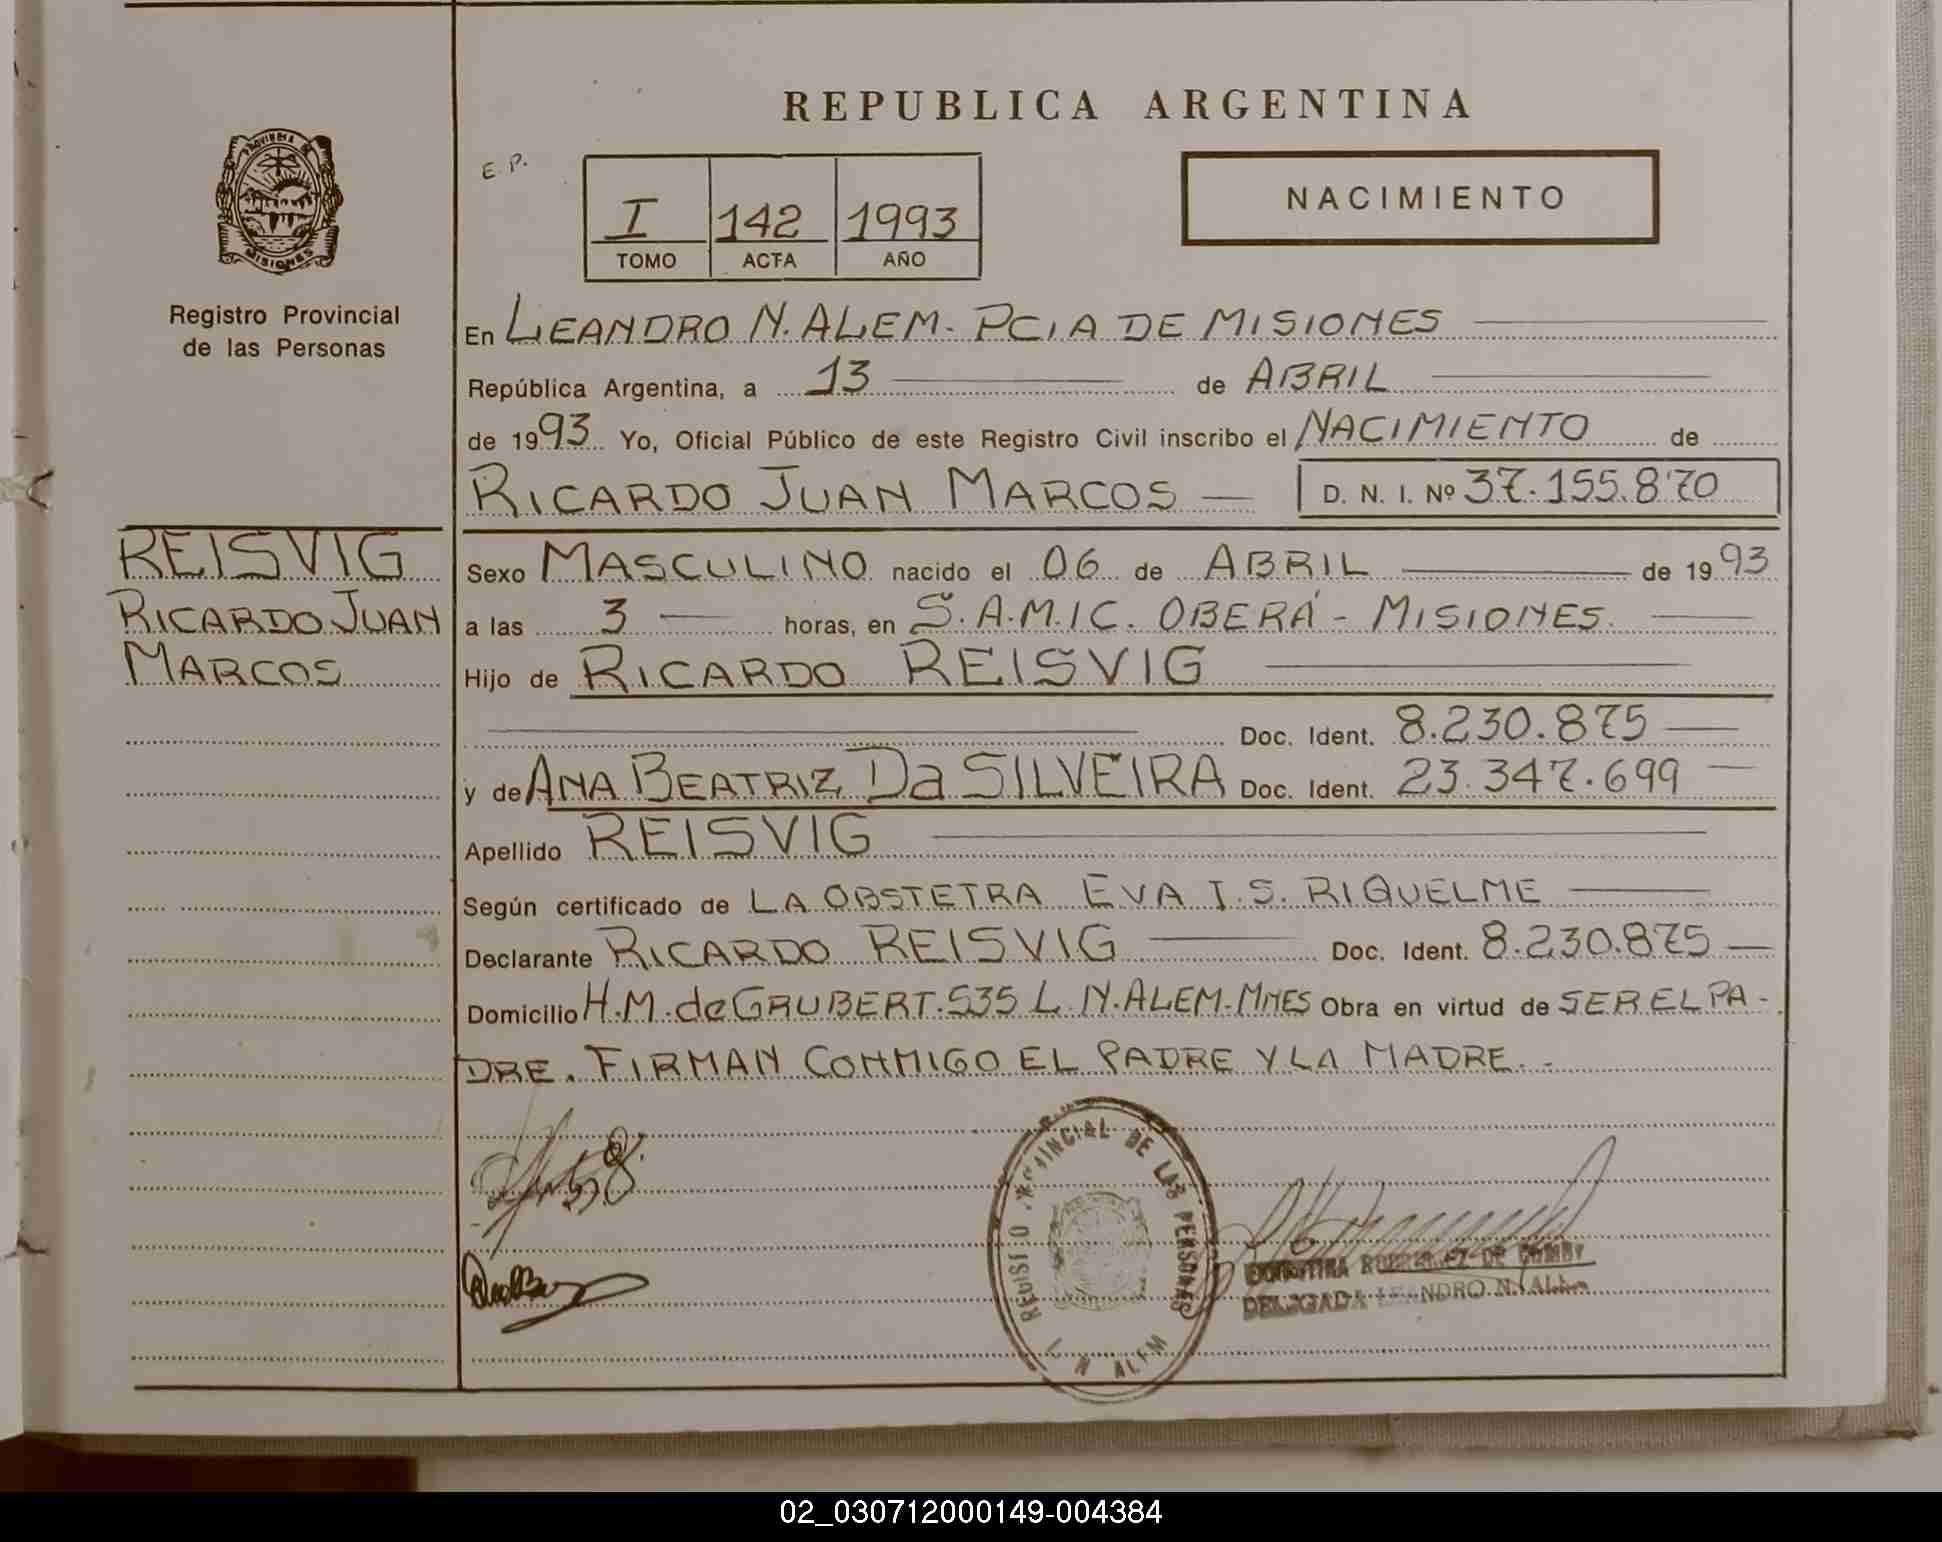 REPUBLICA ARGENTINA
PROVINCIA DE
MISIONES
Registro Provincial
de las Personas
E. P.
I 142 1993
TOMO ACTA AÑO
NACIMIENTO
En LEANDRO N. ALEM - PCIA DE MISIONES
República Argentina, a 13 de ABRIL
de 1993 Yo, Oficial Público de este Registro Civil inscribo el NACIMIENTO de
RICARDO JUAN MARCOS — D. N. I. Nº 37.155.870
REISVIG
RICARDO JUAN
MARCOS
Sexo MASCULINO nacido el 06 de ABRIL de 1993
a las 3 horas, en S.A.M.I.C. OBERÁ - MISIONES.
Hijo de RICARDO REISVIG
Doc. Ident. 8.230.875
y de ANA BEATRIZ Da SILVEIRA Doc. Ident. 23.347.699
Apellido REISVIG
Según certificado de LA OBSTETRA EVA I. S. RIQUELME
Declarante RICARDO REISVIG Doc. Ident. 8.230.875
Domicilio H.M. de GRUBERT.535 L.N.ALEM-MNES Obra en virtud de SER EL PA-
DRE. FIRMAN CONMIGO EL PADRE Y LA MADRE.-
REGISTRO PROVINCIAL DE LAS PERSONAS
L N ALEM
DELEGADA LEANDRO N. ALEM
02_030712000149-004384